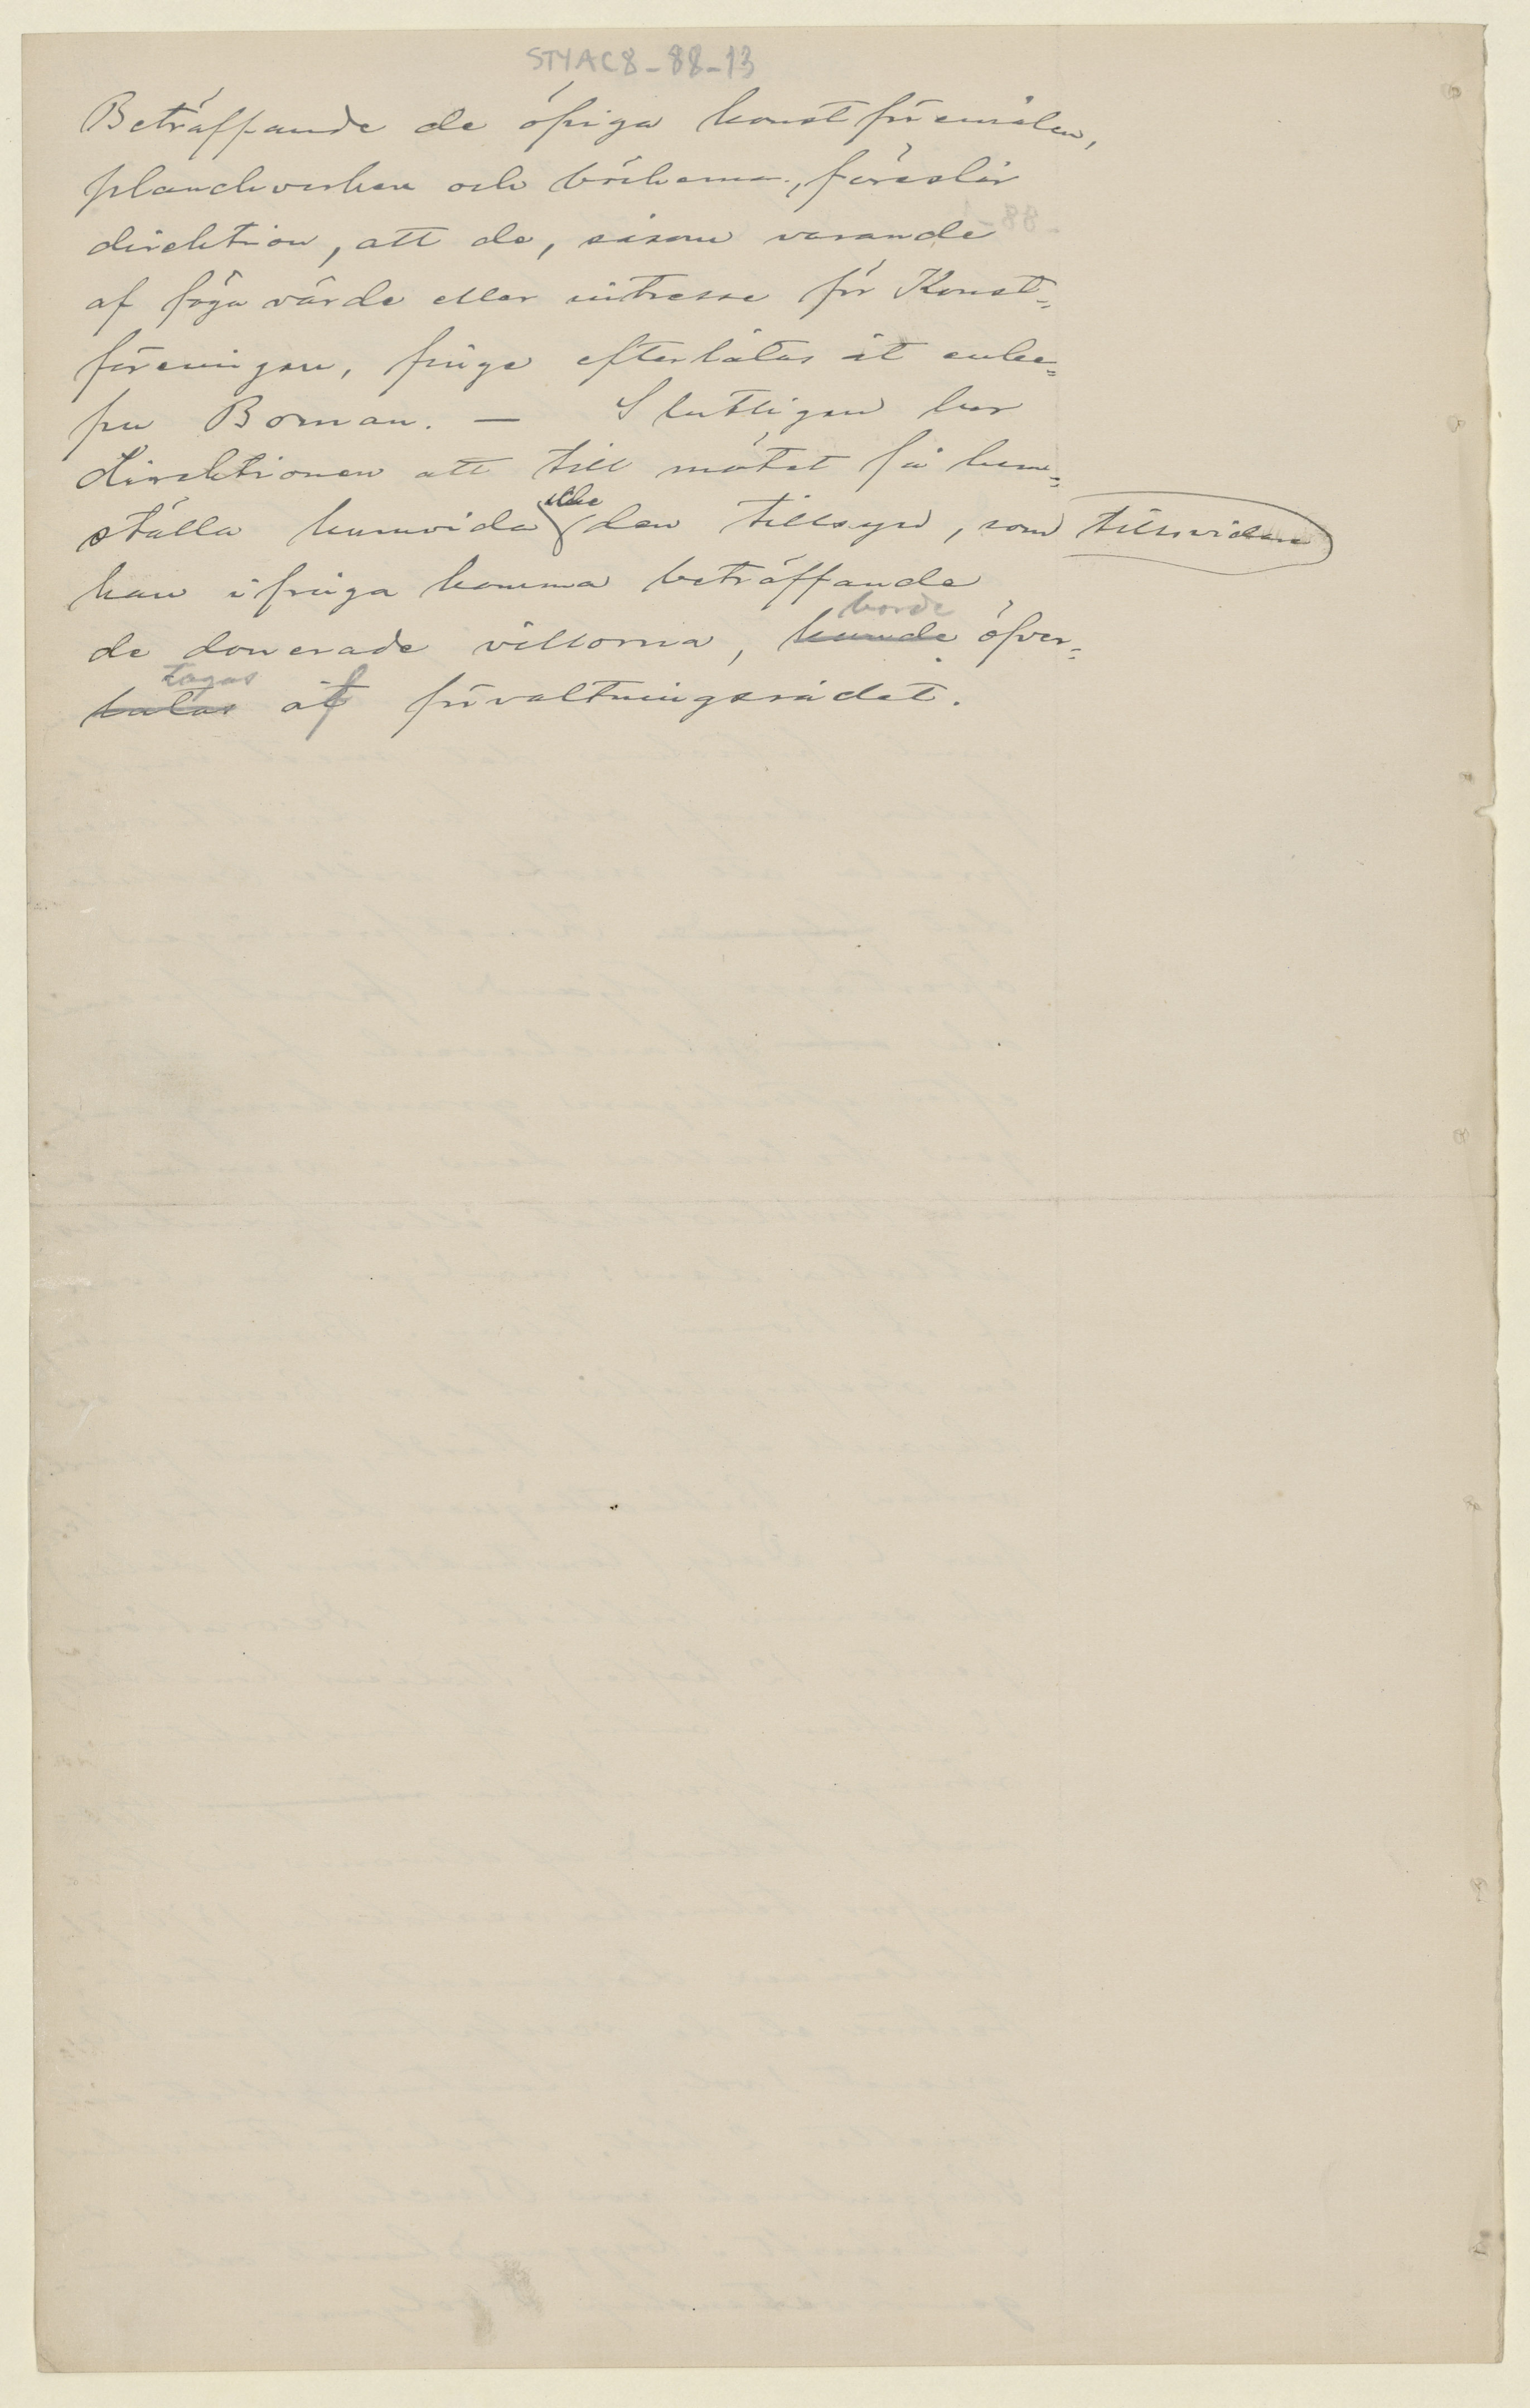 STYAC8-88-13
Beträffande de öfriga konstföremålen,
planchverken och böckerna, föreslår
direktion, att de, såsom varande
af föga värde eller intresse för Konst=
föreningen, finge efterlåtas åt enke=
fru Borman. — Slutligen har
direktionen att till mötet få hem=
ställa huruvida icke den tillsyn, som tillsvidare
kan i fråga komma beträffande
de donerade villorna, kunde borde öfver=
tagas af förvaltningsrådet.